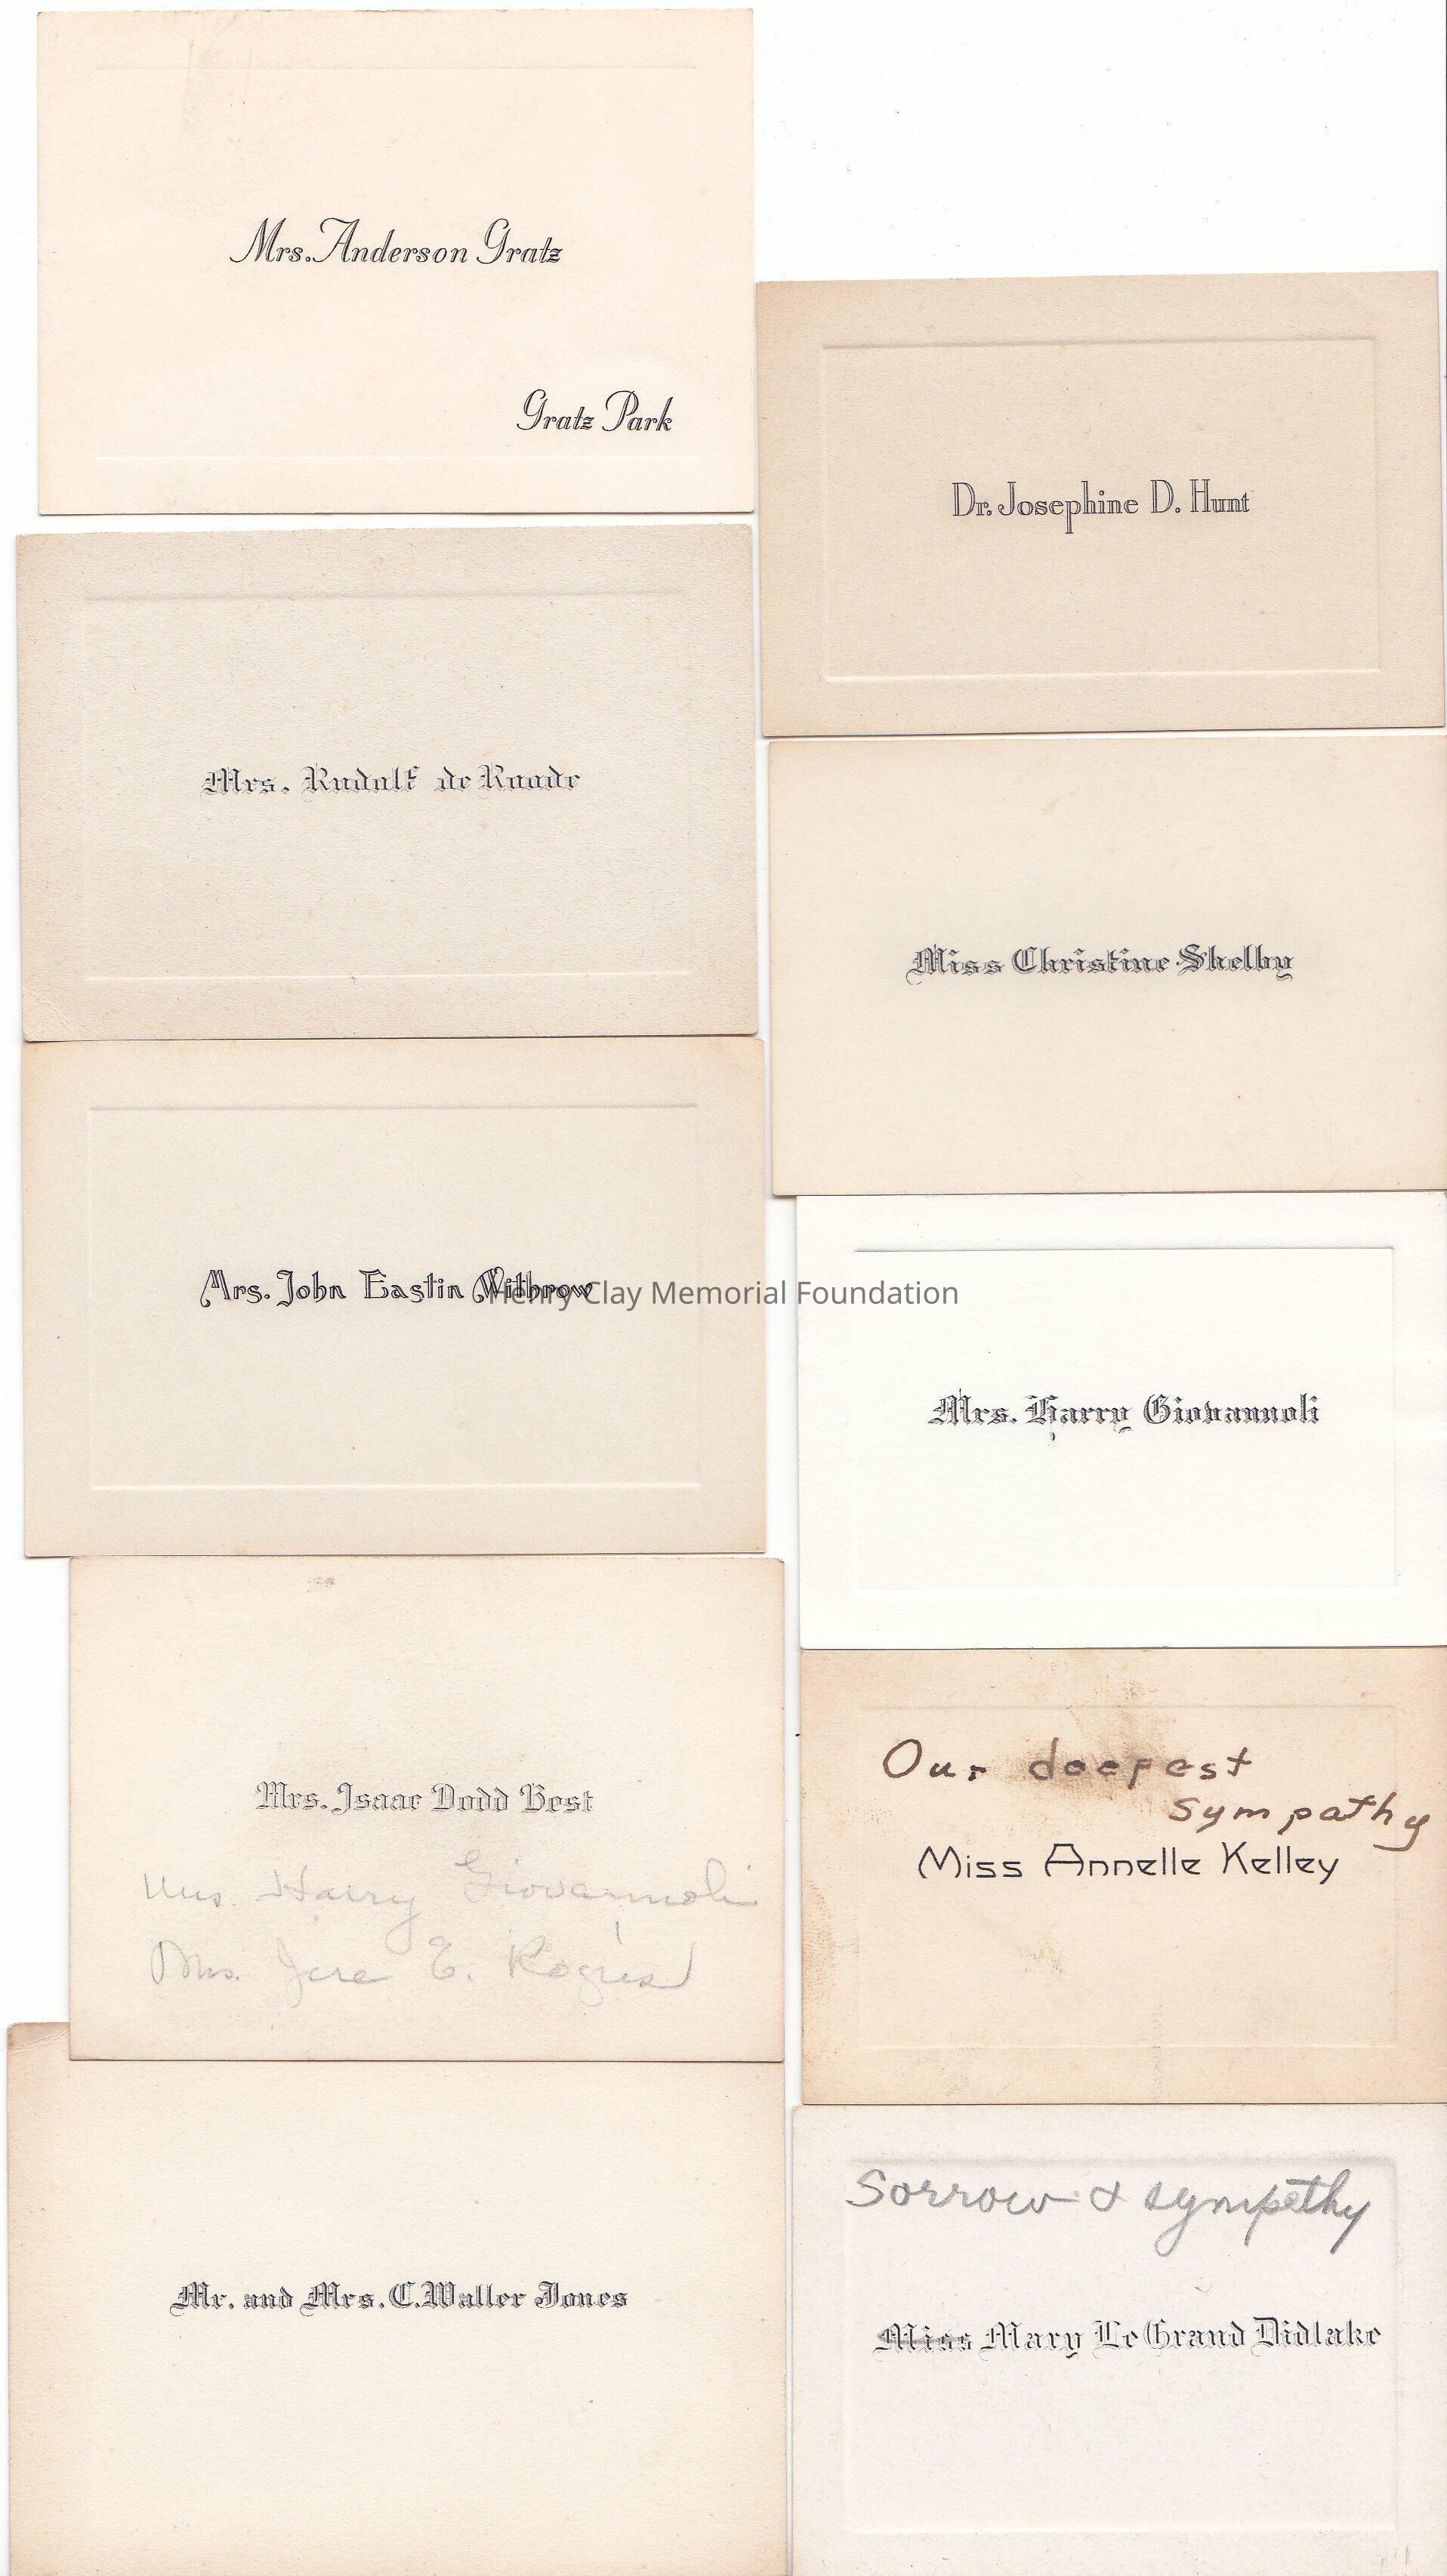 Mrs. Anderson Gratz
Gratz Park
Mrs. Rudolf de Roode
Mrs. John Eastin Withrow
Henry Clay Memorial Foundation
Mrs. Isaac Dodd Best
Mrs. Harry Giovannoli
Mrs. Jere E.
Mr. and Mrs. C. Waller Jones
Dr. Josephine D. Hunt
Miss Christine Shelby
Mrs. Harry Giovannoli
Our deepest
sympathy
Miss Annelle Kelley
Sorrow & sympathy
Miss Mary Le Grand Didlake